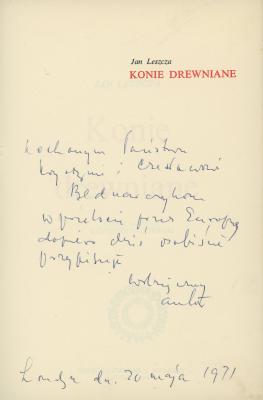 Jan Leszcza
KONIE DREWNIANE
Kochanym Państwu
Krystynie i Czesławowi
Bednarczykom
w podróży przez Europę
dopiero dziś osobiście
przypisuję
wdzięczny
autor
Londyn dn. 20 maja 1971
Konie
drewniane